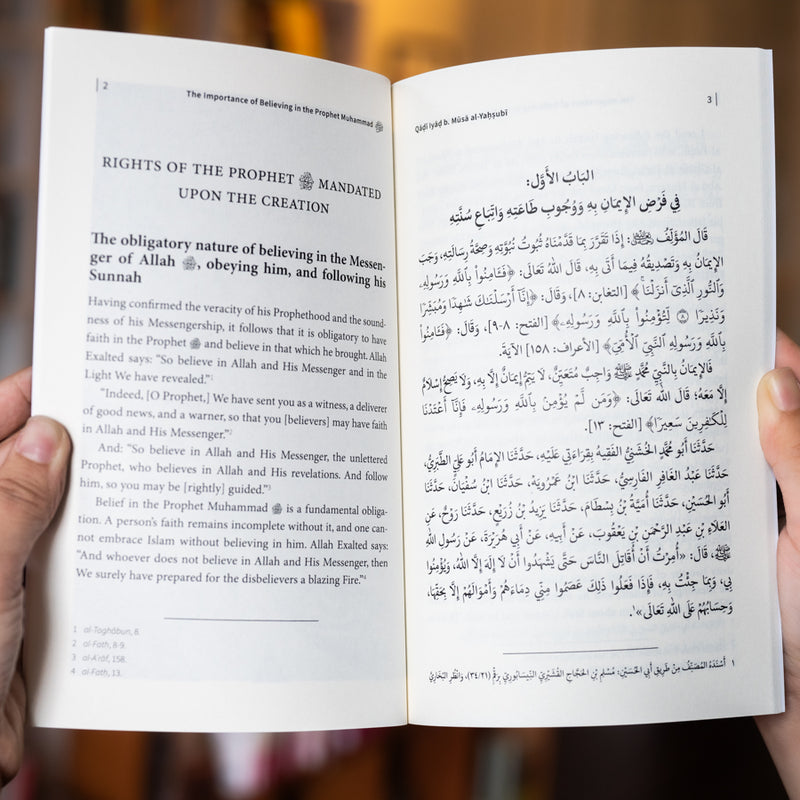 2
The Importance of Believing in the Prophet Muhammad ﷺ
RIGHTS OF THE PROPHET ﷺ MANDATED
UPON THE CREATION
The obligatory nature of believing in the Messen-
ger of Allah ﷺ, obeying him, and following his
Sunnah
Having confirmed the veracity of his Prophethood and the sound-
ness of his Messengership, it follows that it is obligatory to have
faith in the Prophet ﷺ and believe in that which he brought. Allah
Exalted says: “So believe in Allah and His Messenger and in the
Light We have revealed.”1
“Indeed, [O Prophet,] We have sent you as a witness, a deliverer
of good news, and a warner, so that you [believers] may have faith
in Allah and His Messenger.”2
And: “So believe in Allah and His Messenger, the unlettered
Prophet, who believes in Allah and His revelations. And follow
him, so you may be [rightly] guided.”3
Belief in the Prophet Muhammad ﷺ is a fundamental obliga-
tion. A person’s faith remains incomplete without it, and one can-
not embrace Islam without believing in him. Allah Exalted says:
“And whoever does not believe in Allah and His Messenger, then
We surely have prepared for the disbelievers a blazing Fire.”4
1 al-Taghābun, 8.
2 al-Fatḥ, 8-9.
3 al-Aʿrāf, 158.
4 al-Fatḥ, 13.
Qāḍī Iyāḍ b. Mūsā al-Yaḥṣubī
3
البَابُ الأَوَّلُ:
فِي فَرْضِ الإِيمَانِ بِهِ وَوُجُوبِ طَاعَتِهِ وَاتِّبَاعِ سُنَّتِهِ
قَالَ المُؤَلِّفُ: إِذَا تَقَرَّرَ بِمَا قَدَّمْنَاهُ ثُبُوتُ نُبُوَّتِهِ وَصِحَّةُ رِسَالَتِهِ، وَجَبَ
الإِيمَانُ بِهِ وَتَصْدِيقُهُ فِيمَا أَتَى بِهِ، قَالَ اللهُ تَعَالَى: ﴿فَـَٔامِنُوا۟ بِٱللَّهِ وَرَسُولِهِۦ
وَٱلنُّورِ ٱلَّذِىٓ أَنزَلْنَا﴾ [التغابن: ٨]، وَقَالَ: ﴿إِنَّآ أَرْسَلْنَـٰكَ شَـٰهِدًا وَمُبَشِّرًا
وَنَذِيرًا ۝٨ لِّتُؤْمِنُوا۟ بِٱللَّهِ وَرَسُولِهِۦ﴾ [الفتح: ٨-٩]، وَقَالَ: ﴿فَـَٔامِنُوا۟
بِٱللَّهِ وَرَسُولِهِ ٱلنَّبِىِّ ٱلْأُمِّىِّ﴾ [الأعراف: ١٥٨] الآيَةَ.
فَالإِيمَانُ بِالنَّبِيِّ مُحَمَّدٍ ﷺ وَاجِبٌ مُتَعَيِّنٌ، لَا يَتِمُّ إِيمَانٌ إِلَّا بِهِ، وَلَا يَصِحُّ إِسْلَامٌ
إِلَّا مَعَهُ؛ قَالَ اللهُ تَعَالَى: ﴿وَمَن لَّمْ يُؤْمِنۢ بِٱللَّهِ وَرَسُولِهِۦ فَإِنَّآ أَعْتَدْنَا
لِلْكَـٰفِرِينَ سَعِيرًا﴾ [الفتح: ١٣].
حَدَّثَنَا أَبُو مُحَمَّدٍ الخُشَنِيُّ الفَقِيهُ بِقِرَاءَتِي عَلَيْهِ، حَدَّثَنَا الإِمَامُ أَبُو عَلِيٍّ الطَّبَرِيُّ،
حَدَّثَنَا عَبْدُ الغَافِرِ الفَارِسِيُّ، حَدَّثَنَا ابْنُ عَمْرُوَيْهِ، حَدَّثَنَا ابْنُ سُفْيَانَ، حَدَّثَنَا
أَبُو الحُسَيْنِ، حَدَّثَنَا أُمَيَّةُ بْنُ بِسْطَامَ، حَدَّثَنَا يَزِيدُ بْنُ زُرَيْعٍ، حَدَّثَنَا رَوْحٌ، عَنِ
العَلَاءِ بْنِ عَبْدِ الرَّحْمَنِ بْنِ يَعْقُوبَ، عَنْ أَبِيهِ، عَنْ أَبِي هُرَيْرَةَ، عَنْ رَسُولِ اللهِ
ﷺ، قَالَ: «أُمِرْتُ أَنْ أُقَاتِلَ النَّاسَ حَتَّى يَشْهَدُوا أَنْ لَا إِلَهَ إِلَّا اللهُ، وَيُؤْمِنُوا
بِي، وَبِمَا جِئْتُ بِهِ، فَإِذَا فَعَلُوا ذَلِكَ عَصَمُوا مِنِّي دِمَاءَهُمْ وَأَمْوَالَهُمْ إِلَّا بِحَقِّهَا،
وَحِسَابُهُمْ عَلَى اللهِ تَعَالَى»١.
١ أَسْنَدَهُ المُصَنِّفُ مِنْ طَرِيقِ أَبِي الحُسَيْنِ: مُسْلِمِ بْنِ الحَجَّاجِ القُشَيْرِيِّ النِّيسَابُورِيِّ بِرَقْمِ (٣٤/٢١)، وَانْظُرِ البُخَارِيَّ